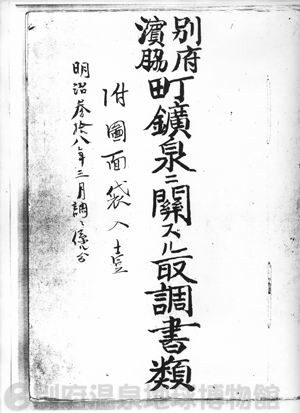 別府
濱脇
町鑛泉ニ關スル取調書類
附圖面袋入
明治叁拾八年三月調
別府温泉地球博物館